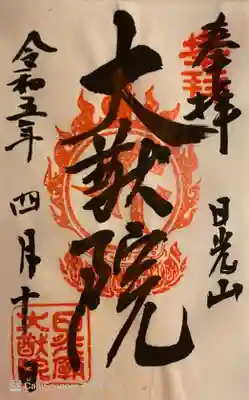 奉拝
日光山
大猷院
令和五年
四月十一日
日光山
大猷院
CamScanner